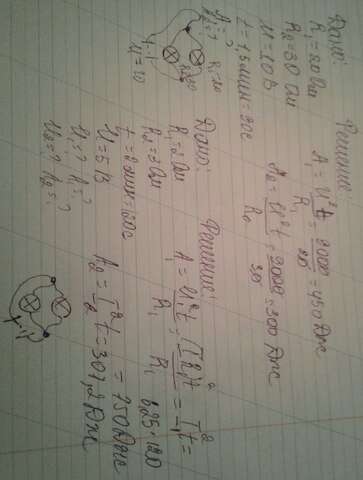 Дано:
R₁ = 20 Ом
R₂ = 30 Ом
U = 10 В
t = 1,5 мин = 90 с
A₁ = ?
A₂ = ?
R₁=20
R₂=30
U = 10
Решение:
A₁ = U²t / R₁ = 9000 / 20 = 450 Дж
A₂ = U²t / R₂ = 9000 / 30 = 300 Дж
Дано:
R₁ = 2 Ом
R₂ = 3 Ом
t = 2 мин = 120 с
U = 5 В
U₁ = ? A₁ = ?
U₂ = ? A₂ = ?
Решение:
A₁ = U₁²t / R₁ = (I R₁)²t / R₁ = I²t =
6,25·120
= 750 Дж
A₂ = I²t = 307,2 Дж